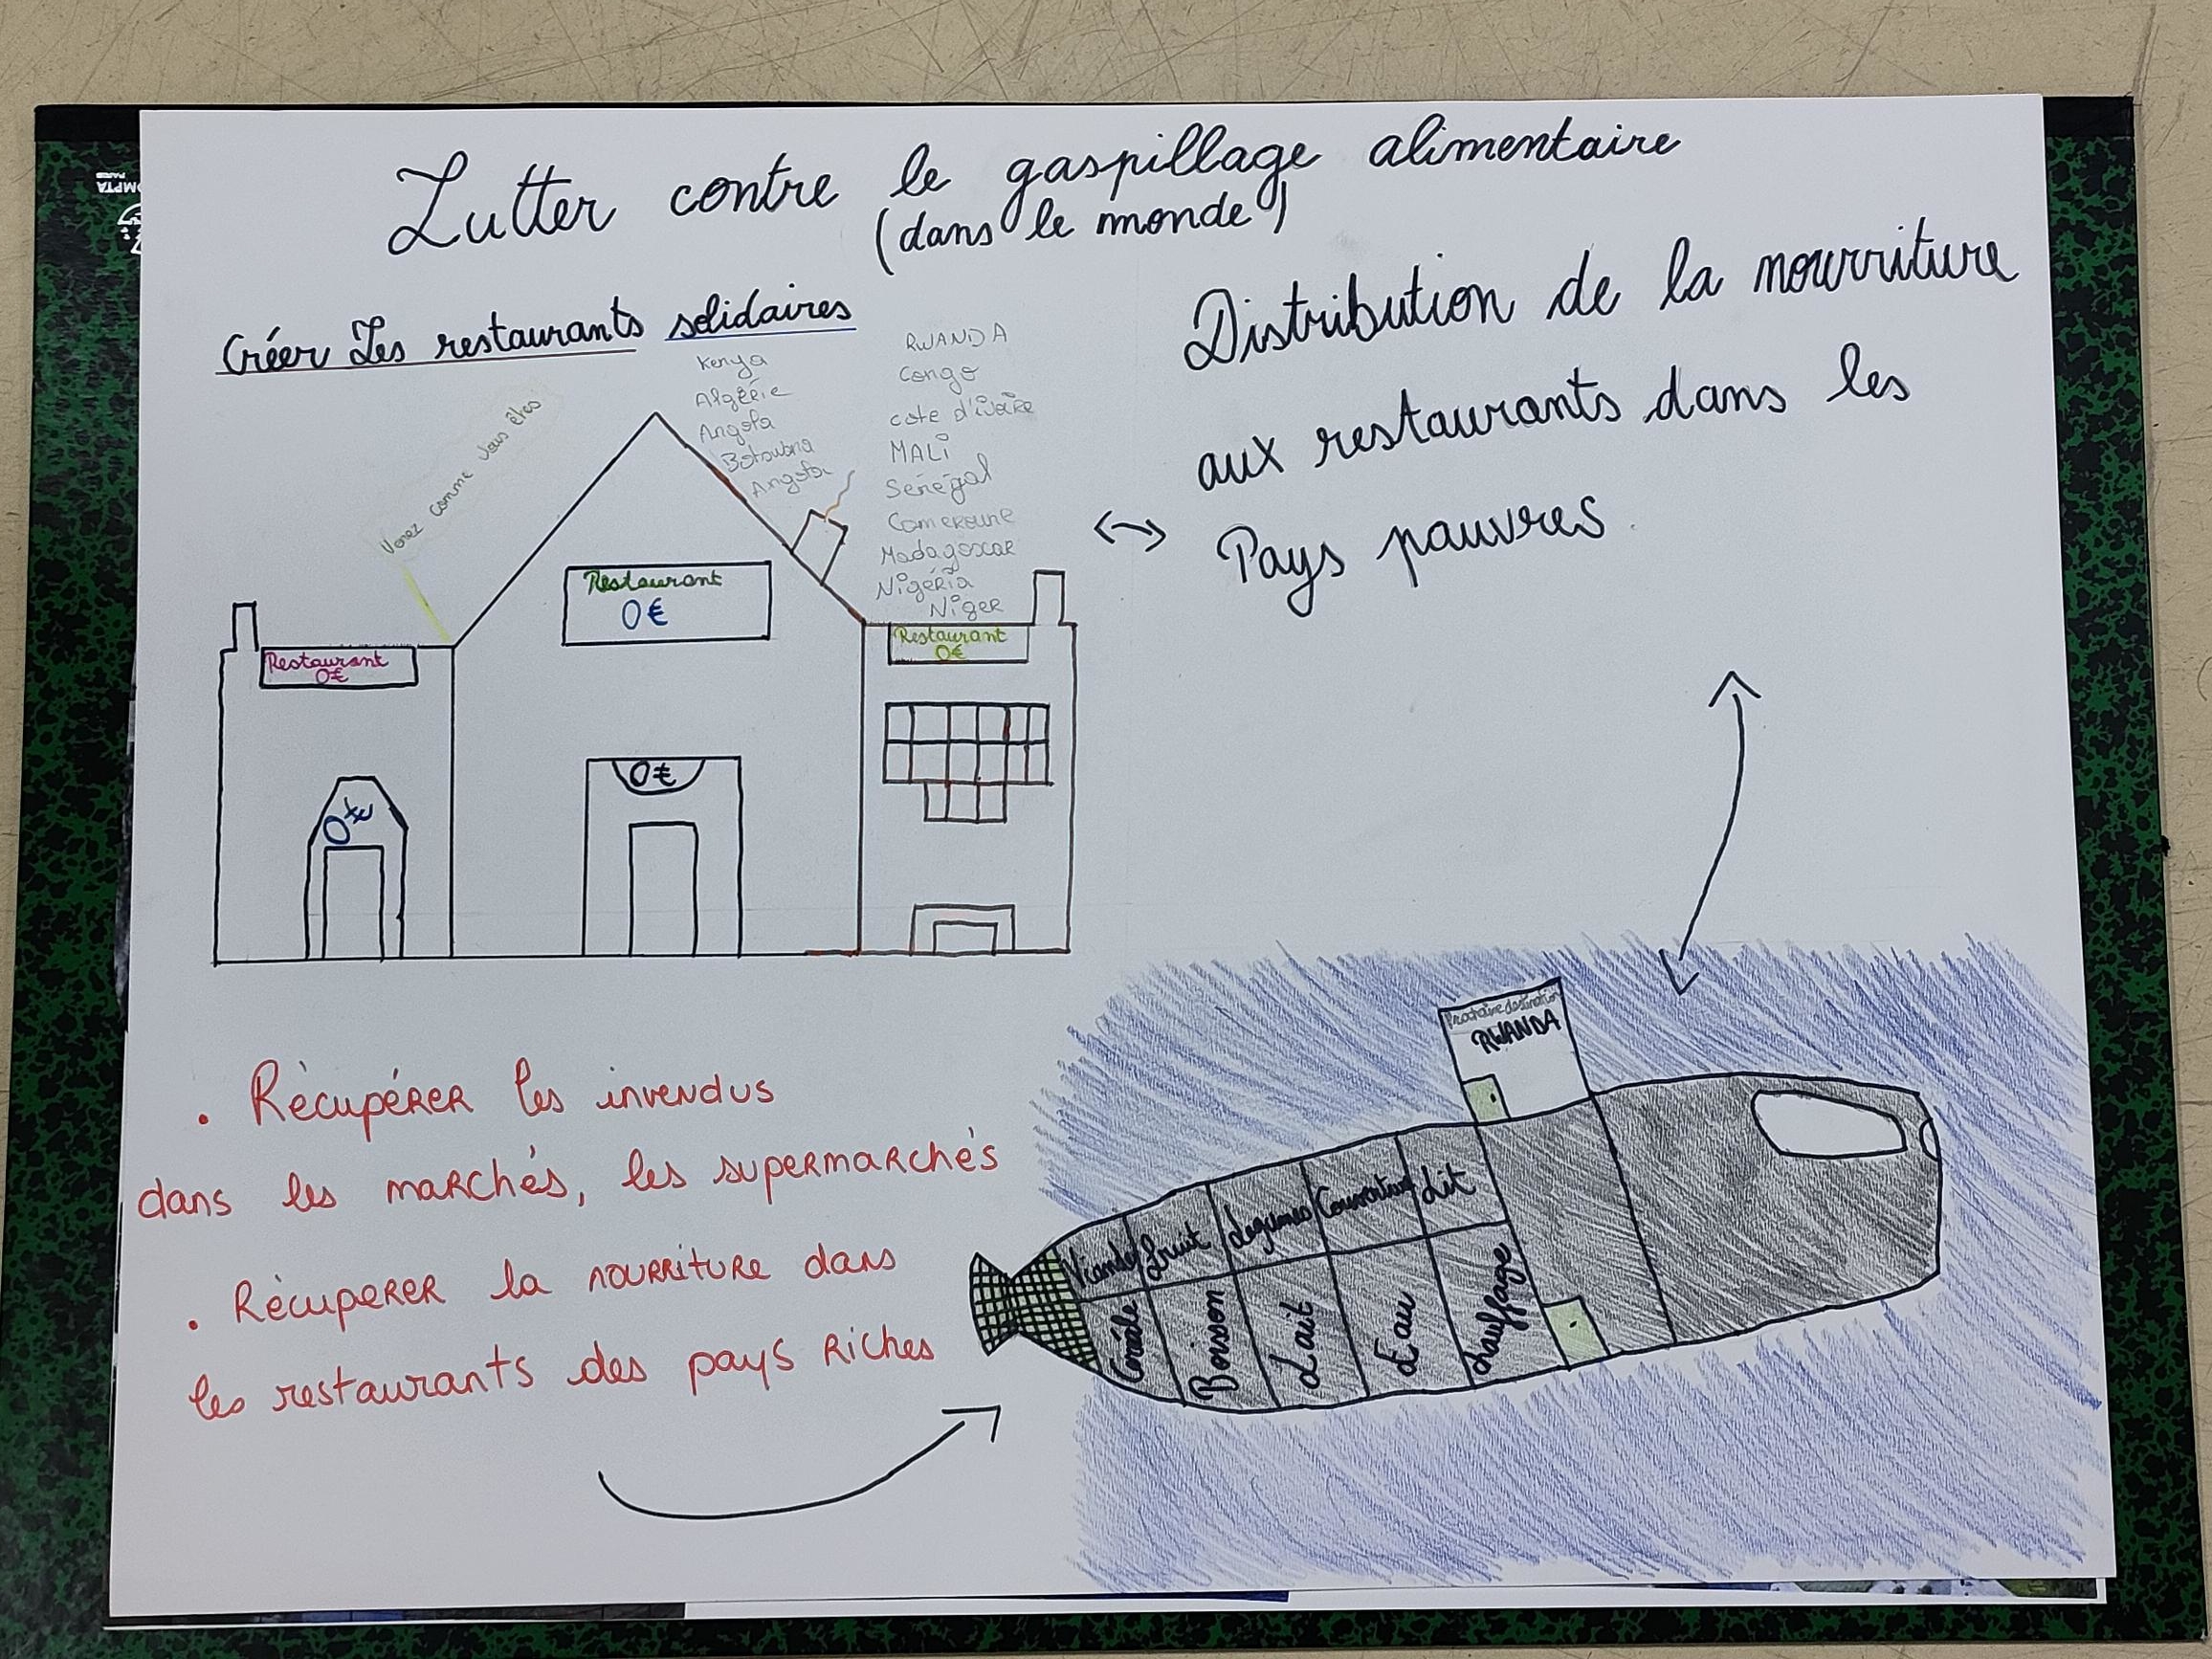 Lutter contre le gaspillage alimentaire
(dans le monde)
Créer Les restaurants solidaires
Venez comme vous êtes
Kenya
Algérie
Angola
Botoubna
Angola
RWANDA
Congo
MALI
Sénégal
Cameroune
Madagascar
Nigéria
Niger
Distribution de la nourriture
aux restaurants dans les
Pays pauvres
Restaurant
0€
Restaurant
0€
Restaurant
0€
0€
0€
. Récupérer les invendus
dans les marchés, les supermarchés
. Récuperer la nourriture dans
les restaurants des pays riches
Prochaine destination
RWANDA
Viande
fruit
Legumes
Lit
Boisson
Lait
Eau
chauffage